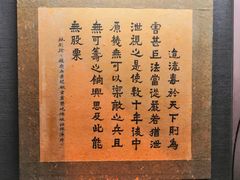 迨流毒於天下則為
害甚巨法當從嚴若猶泄
泄視之是使數十年後中
原幾無可以禦敵之兵且
無可籌之餉興思及此能
無股栗
林則徐